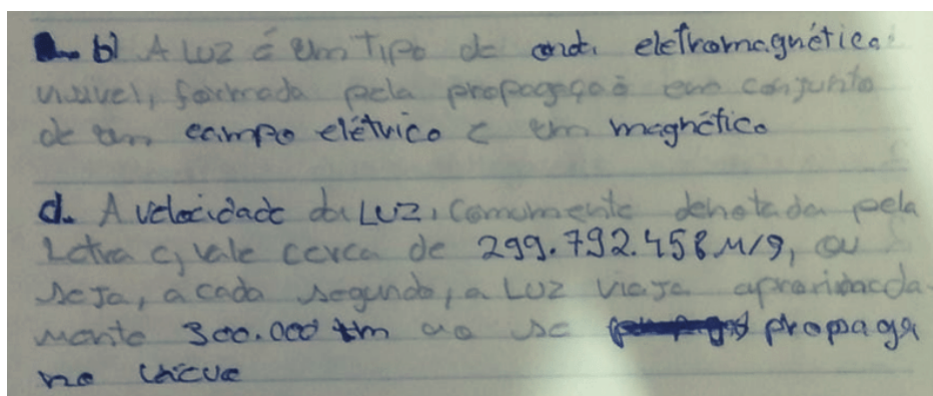 b) A LUZ é um TIPO de onda eletromagnética
visível, formada pela propagação em conjunto
de um campo elétrico e um magnético
d. A velocidade da LUZ, comumente denotada pela
Letra c, vale cerca de 299.792.458 M/s, ou
seja, a cada segundo, a LUZ viaja aproximada-
mente 300.000 km ao se propaga
no vácuo